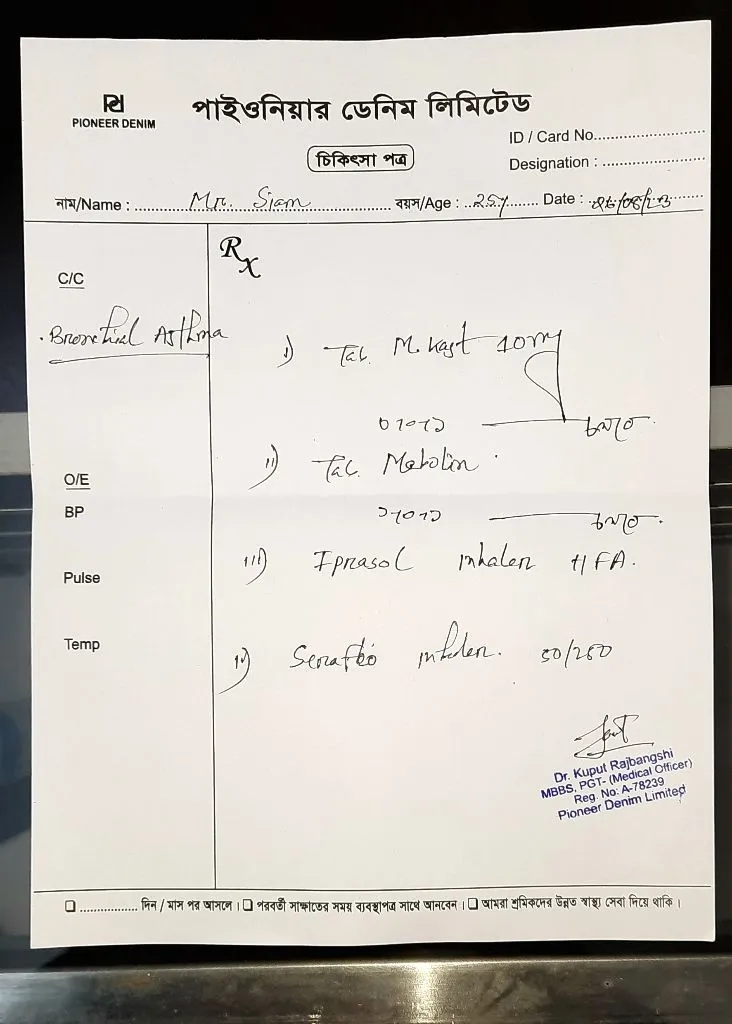 PIONEER DENIM
পাইওনিয়ার ডেনিম লিমিটেড
চিকিৎসা পত্র
ID / Card No.
Designation :
নাম/Name : Mr. Siam বয়স/Age : 25y Date :
Rx
C/C
Bronchial Asthma
i) Tab. M. Kast 10mg
ii) Tab.
O/E
BP
iii) Iprasol inhaler HFA.
Pulse
Temp
iv) inhaler. 50/250
Dr. Kuput Rajbangshi
MBBS, PGT- (Medical Officer)
Reg. No: A-78239
Pioneer Denim Limited
☐ ................. দিন / মাস পর আসলে। ☐ পরবর্তী সাক্ষাতের সময় ব্যবস্থাপত্র সাথে আনবেন। ☐ আমরা শ্রমিকদের উন্নত স্বাস্থ্য সেবা দিয়ে থাকি।